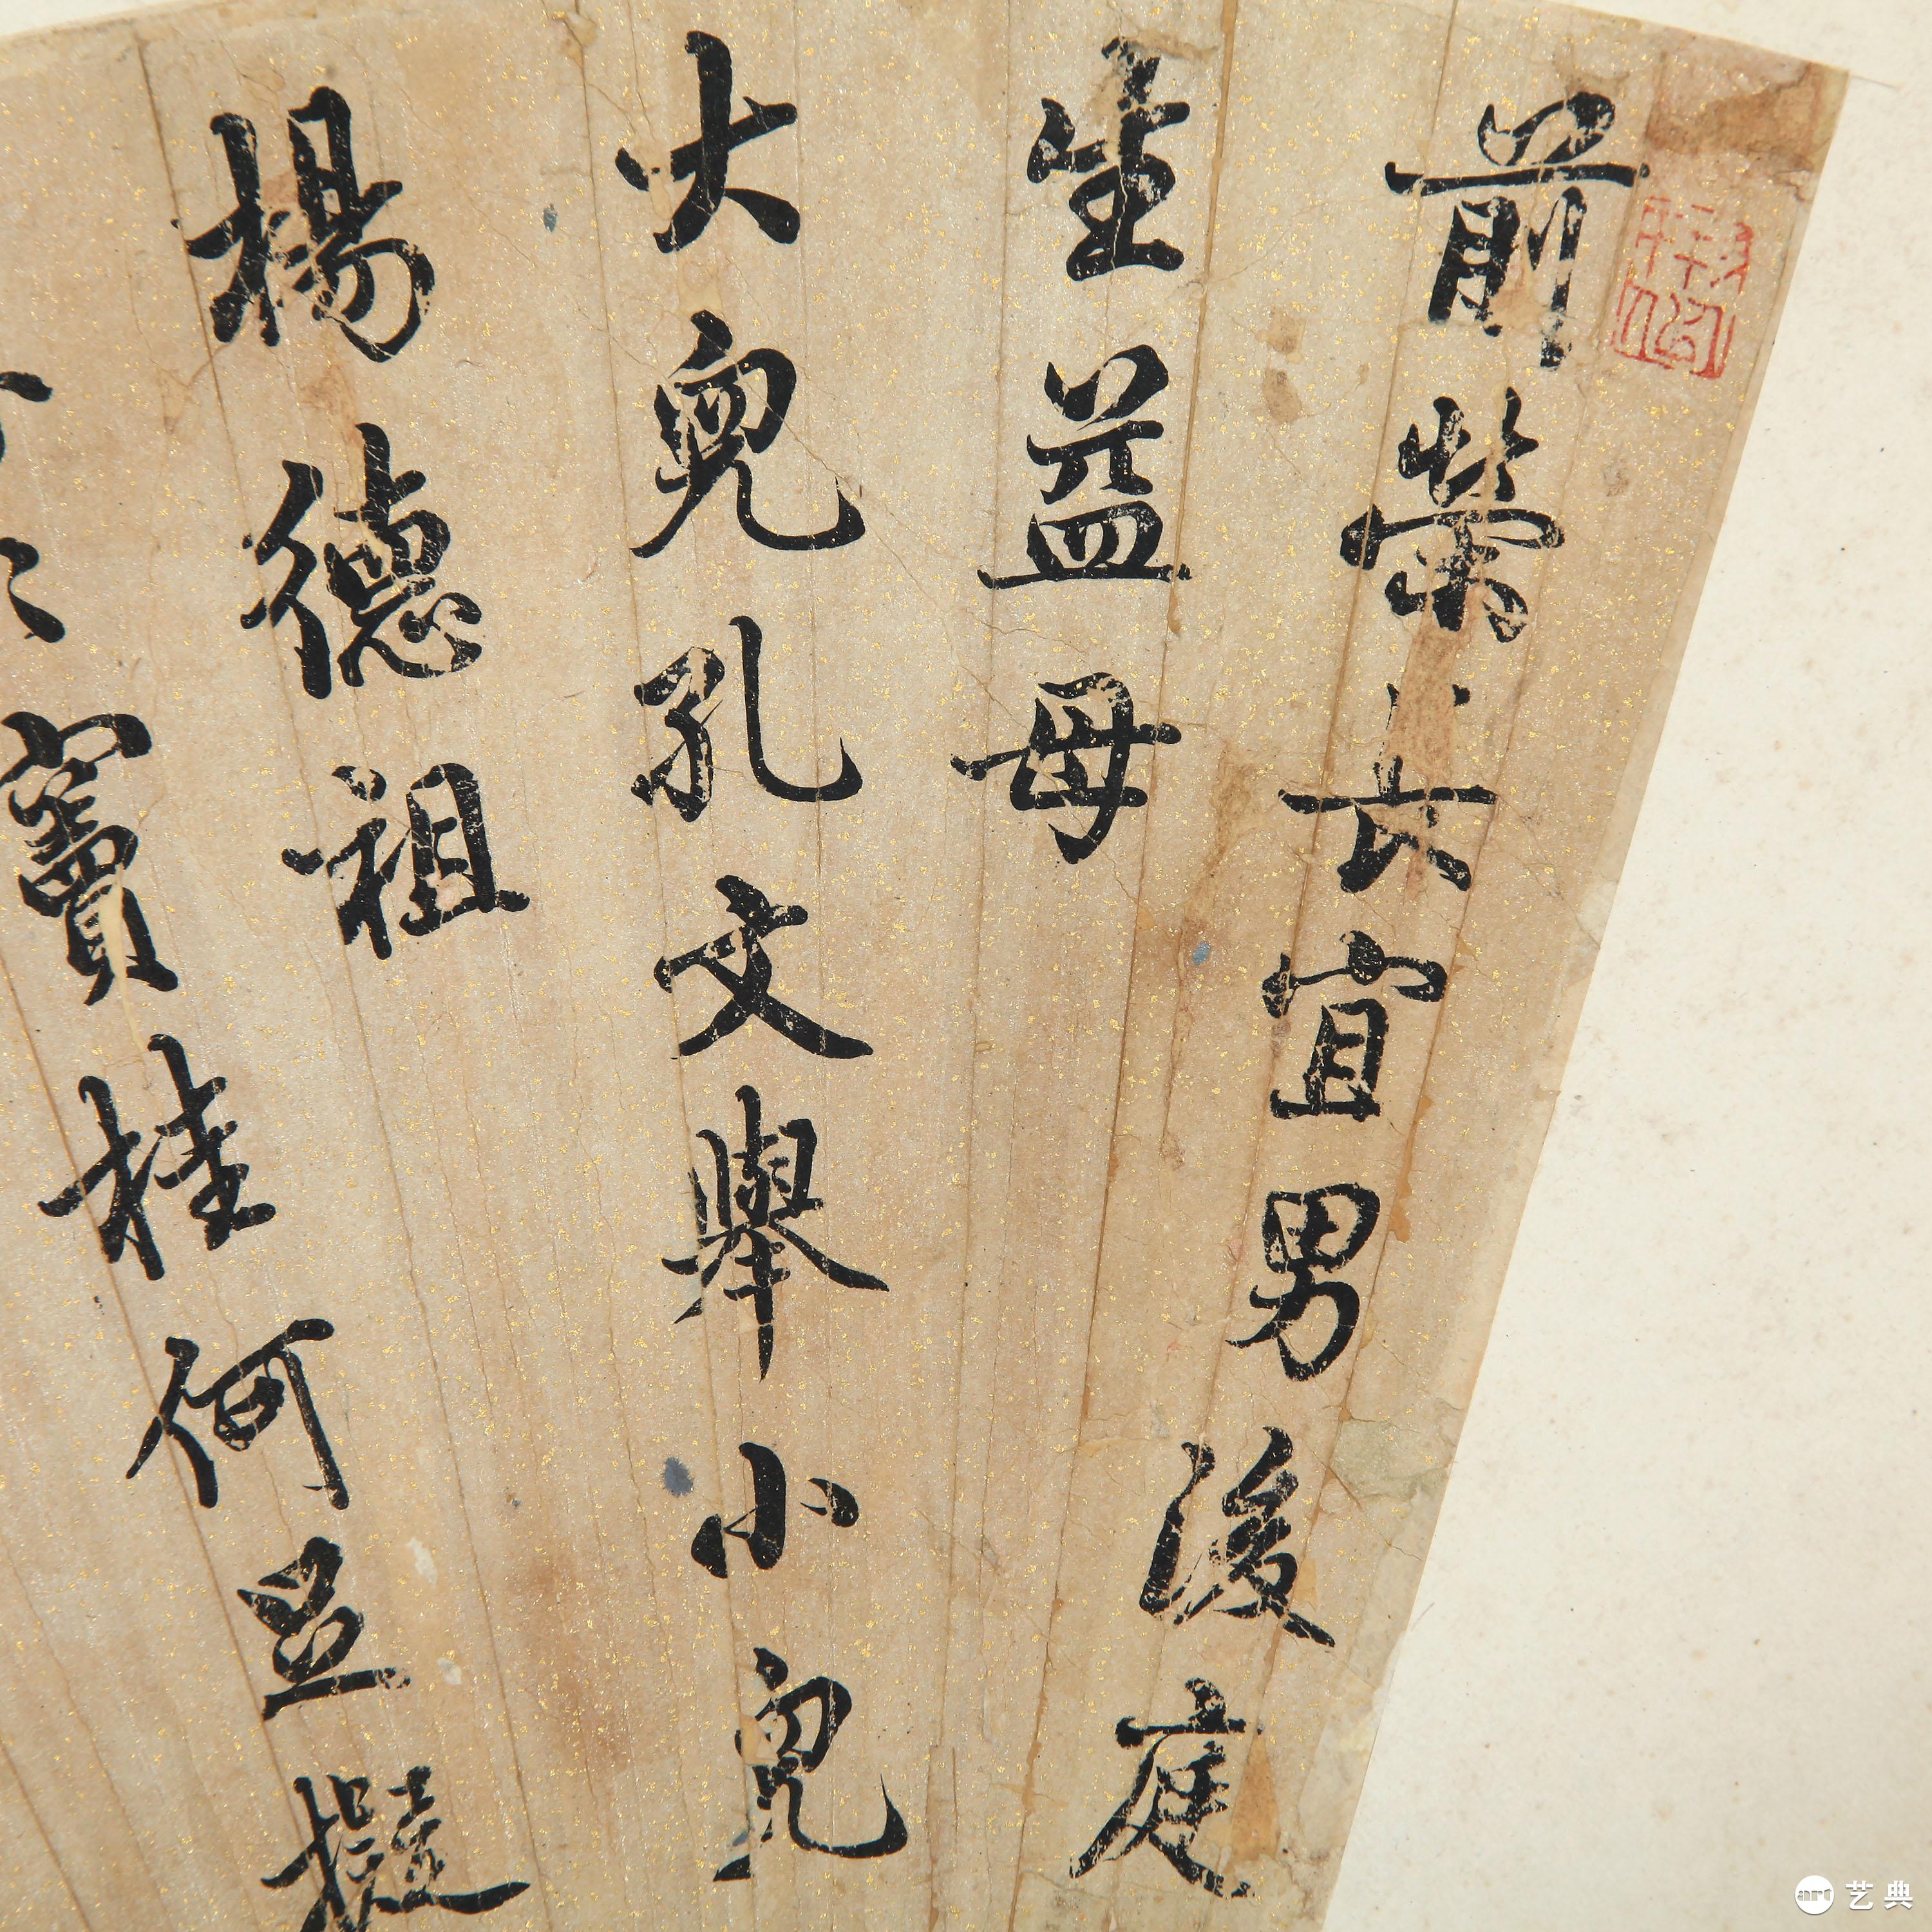 前榮長宜男後庭
生益母
大兒孔文舉小兒
楊德祖
竇桂何足擬
art 艺典